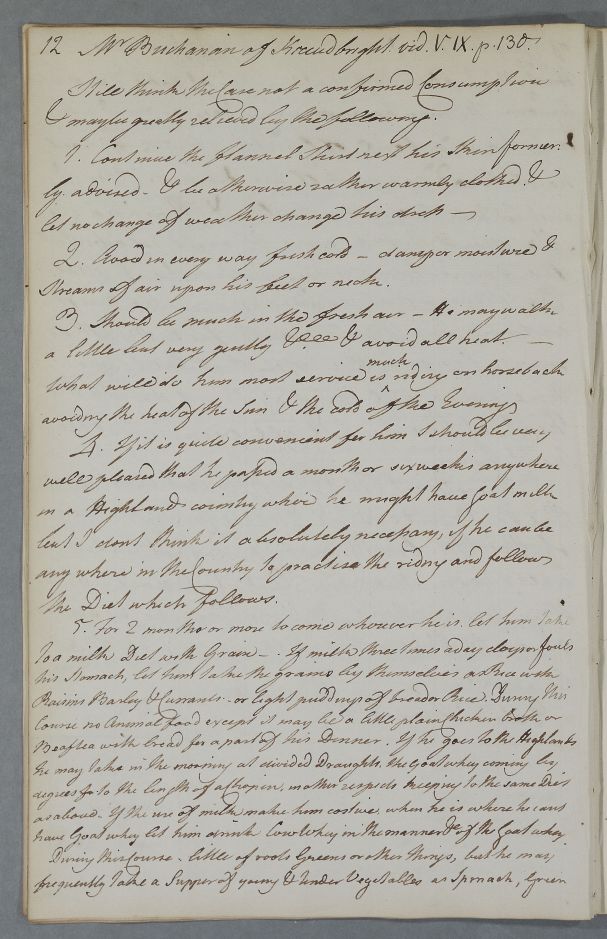 12 Mr Buchanan of Kirkcudbright vid. V. IX. p. 130.
I Still think the Case not a confirmed Consumption
& may be greatly relieved by the following.
1. Continue the flannel Shirt next his Skin former-
ly advised - & be otherwise rather warmly clothed. &
let no change of weather change his dress —
2. Avoid in every way fresh cold - damp or moisture &
Streams of air upon his feet or neck.
3. Should be much in the fresh air - He may walk
a little but very gently & avoid all heat. —
What will do him most service is much riding on horseback
avoiding the heat of the Sun & the cold of the Evening
4. If it is quite convenient for him I should be very
well pleased that he passed a month or six weeks anywhere
in a Highland country where he might have Goat milk
but I dont think it absolutely necessary, if he can be
any where in the Country to practise the riding and follow
the Diet which follows.
5. For 2 months or more to come whoever he is. let him take
to a milk Diet with Grain - . If milk three times a day cloys or fouls
his Stomach, let him take the grains by themselves as Rice with
Raisins Barley & Currants - or light puddings of bread or Rice. During this
Course no Animal food except it may be a little plain Chicken Broth or
Beaftea with bread for a part of his Dinner. If he goes to the Highlands
he may take in the morning at divided Draughts. the Goat whey coming by
degrees to the length of a Chopin, in other respects keeping to the same Diet
as above. If the use of milk make him costive, when he is where he cant
have Goat whey let him drink Cow Whey in the manner &c of the Goat whey
During this course - little of roots Greens or other things, but he may
frequently take a Supper of young & tender Vegetables as Spinach, Green